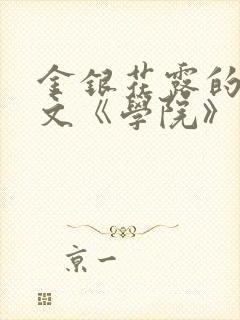 金銀花露的
文《學院》
京一